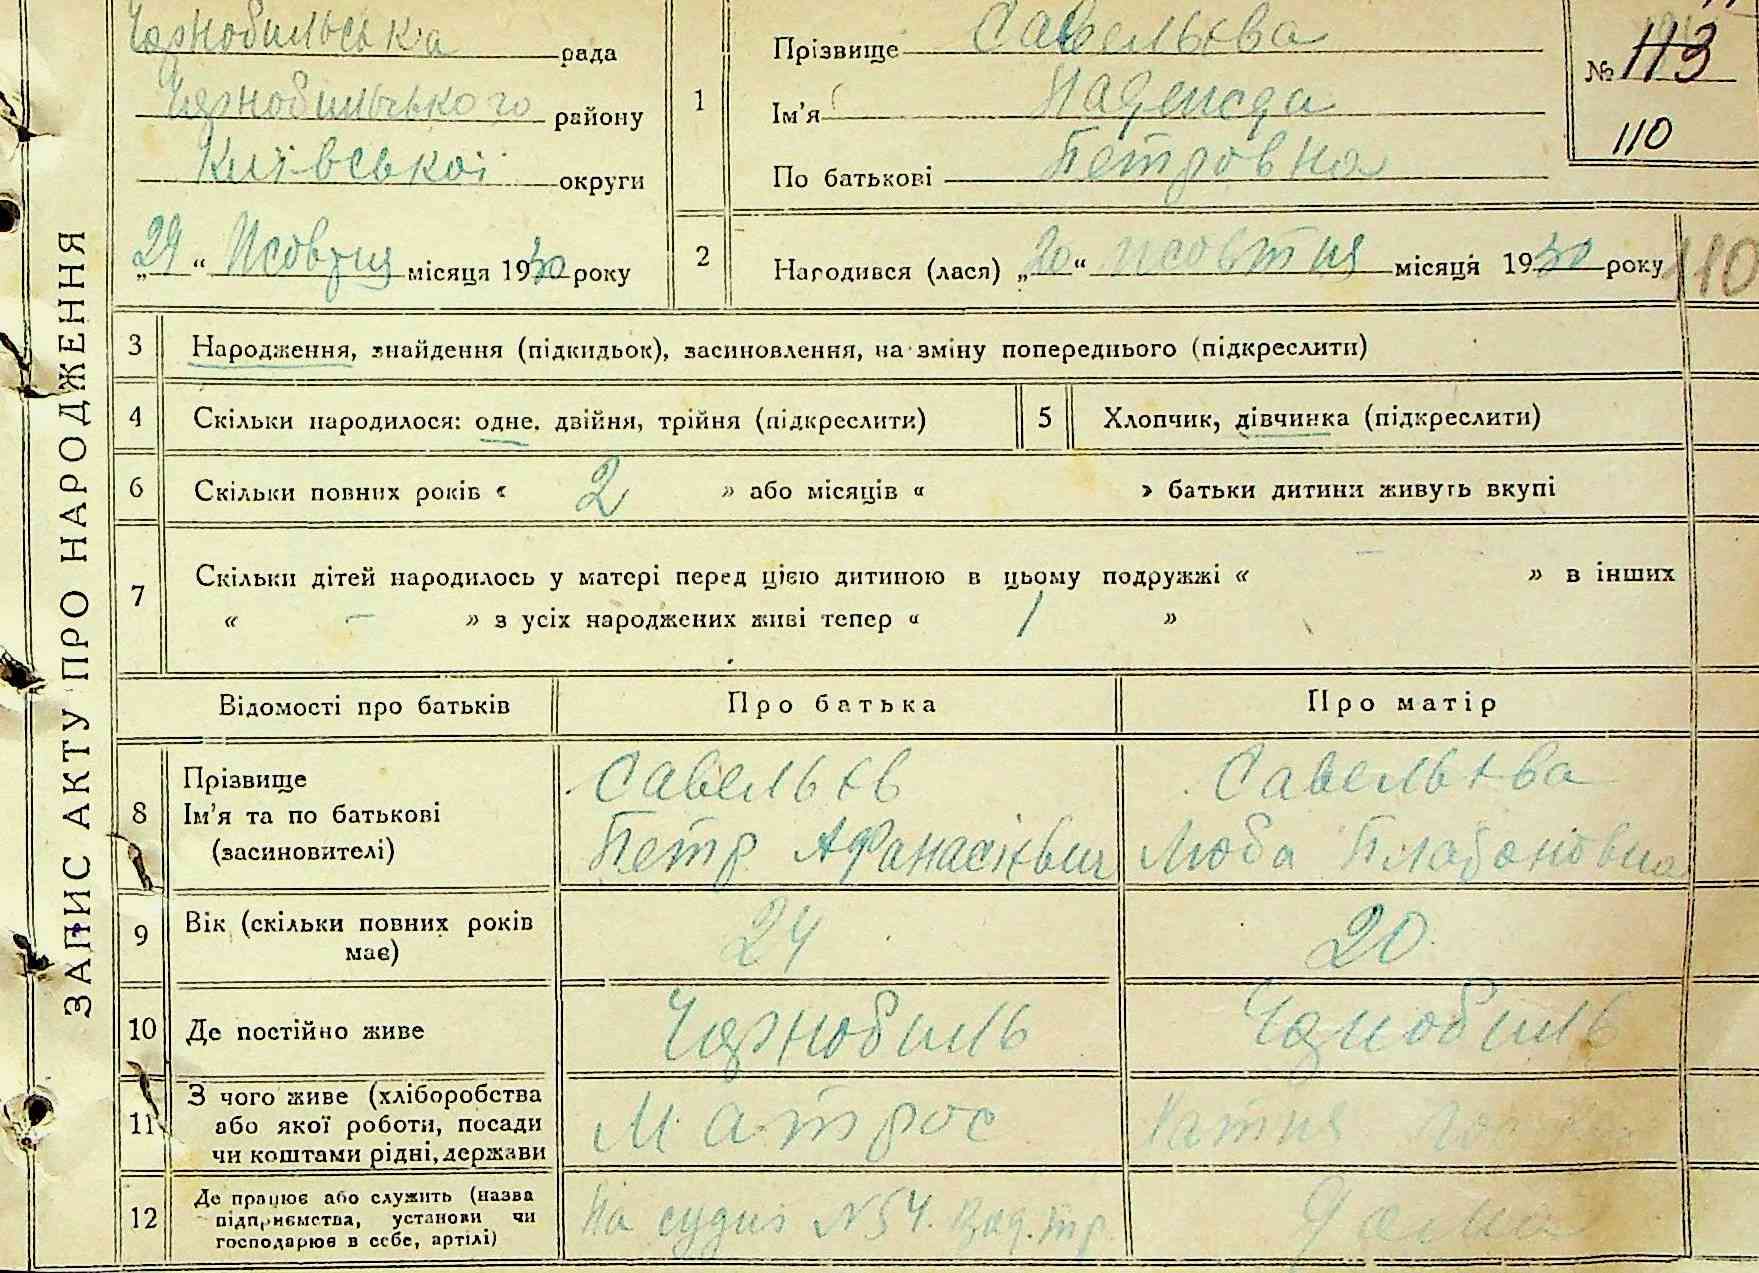 ЗАПИС АКТУ ПРО НАРОДЖЕННЯ
Чорнобильська рада
Чорнобильського району
Київської округи
„29“ Жовтня місяця 1930 року
1
Прізвище Савельєва
Ім'я Надежда
По батькові Петровна
№ 113
110
2
Народився (лася) „20“ жовтня місяця 1930 року
110
3 Народження, знайдення (підкидьок), засиновлення, на зміну попереднього (підкреслити)
4 Скільки народилося: одне, двійня, трійня (підкреслити)
5 Хлопчик, дівчинка (підкреслити)
6 Скільки повних років « 2 » або місяців « » батьки дитини живуть вкупі
7 Скільки дітей народилось у матері перед цією дитиною в цьому подружжі « – » в інших
« – » з усіх народжених живі тепер « 1 »
Відомості про батьків Про батька Про матір
8 Прізвище
Ім'я та по батькові
(засиновителі)
Савельєв
Петр Афанасієвич
Савельєва
Люба Платоновна
9 Вік (скільки повних років
має)
24 20
10 Де постійно живе Чорнобиль Чорнобиль
11 З чого живе (хліборобства
або якої роботи, посади
чи коштами рідні, держави
Матрос
Хатня
12 Де працює або служить (назва
підприємства, установи чи
господарює в себе, артілі)
На судні №54.